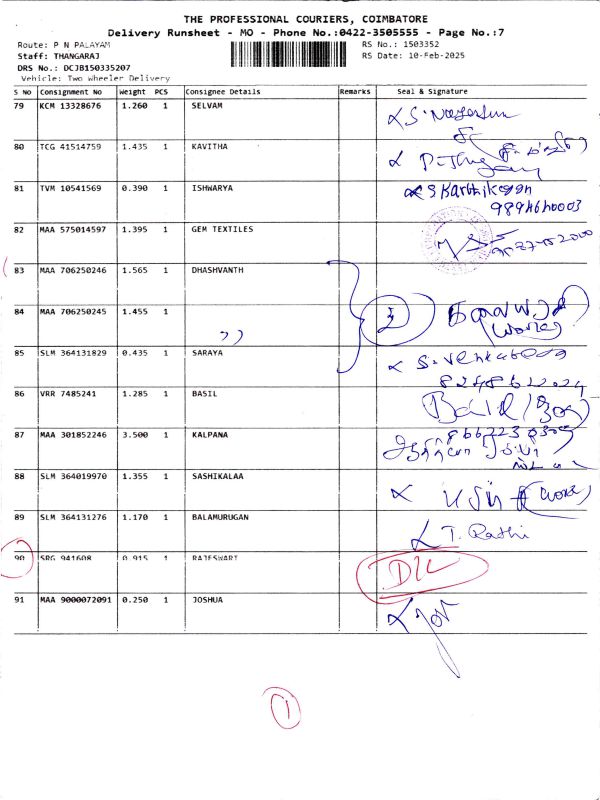 THE PROFESSIONAL COURIERS, COIMBATORE
Delivery Runsheet - MO - Phone No.:0422-3505555 - Page No.:7
Route: P N PALAYAM
RS No.: 1503352
Staff: THANGARAJ
RS Date: 10-Feb-2025
DRS No.: DCJB150335207
Vehicle: Two Wheeler Delivery
S No Consignment No Weight PCS Consignee Details Remarks Seal & Signature
79 KCM 13328676 1.260 1 SELVAM
80 TCG 41514759 1.435 1 KAVITHA
81 TVM 10541569 0.390 1 ISHWARYA S Karthikeyan
82 MAA 575014597 1.395 1 GEM TEXTILES
83 MAA 706250246 1.565 1 DHASHVANTH
84 MAA 706250245 1.455 1 ,,
85 SLM 364131829 0.435 1 SARAYA
86 VRR 7485241 1.285 1 BASIL
87 MAA 301852246 3.500 1 KALPANA
88 SLM 364019970 1.355 1 SASHIKALAA
89 SLM 364131276 1.170 1 BALAMURUGAN T. Rathi
90 SRG 941608 0.915 1 RAJESWARI D/L
91 MAA 9000072091 0.250 1 JOSHUA
1